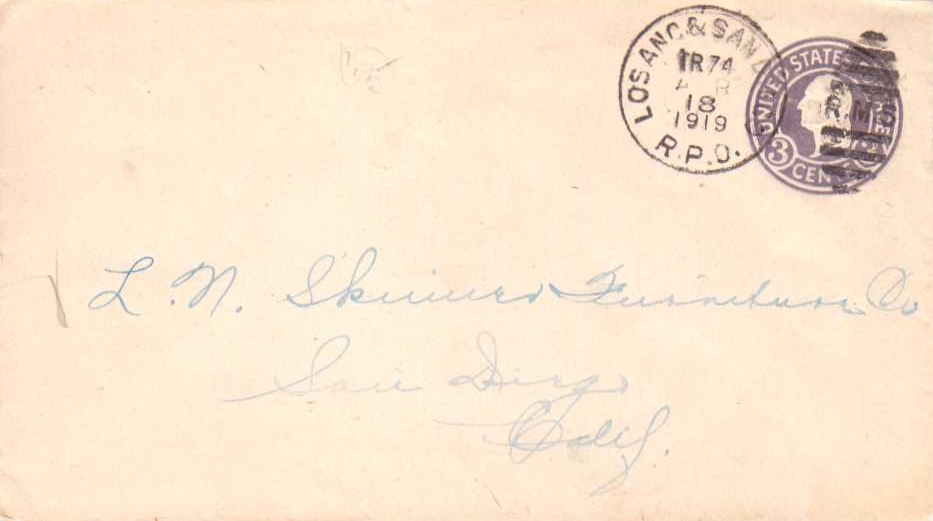 LOS ANG & SAN D
TR 74
APR
18
1919
R.P.O.
UNITED STATES
3 CENTS
L. N. Skinners Furniture Co
San Diego
Calif.